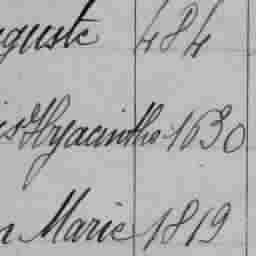 guste 484
is Hyacinthe 1630
n Marie 1819